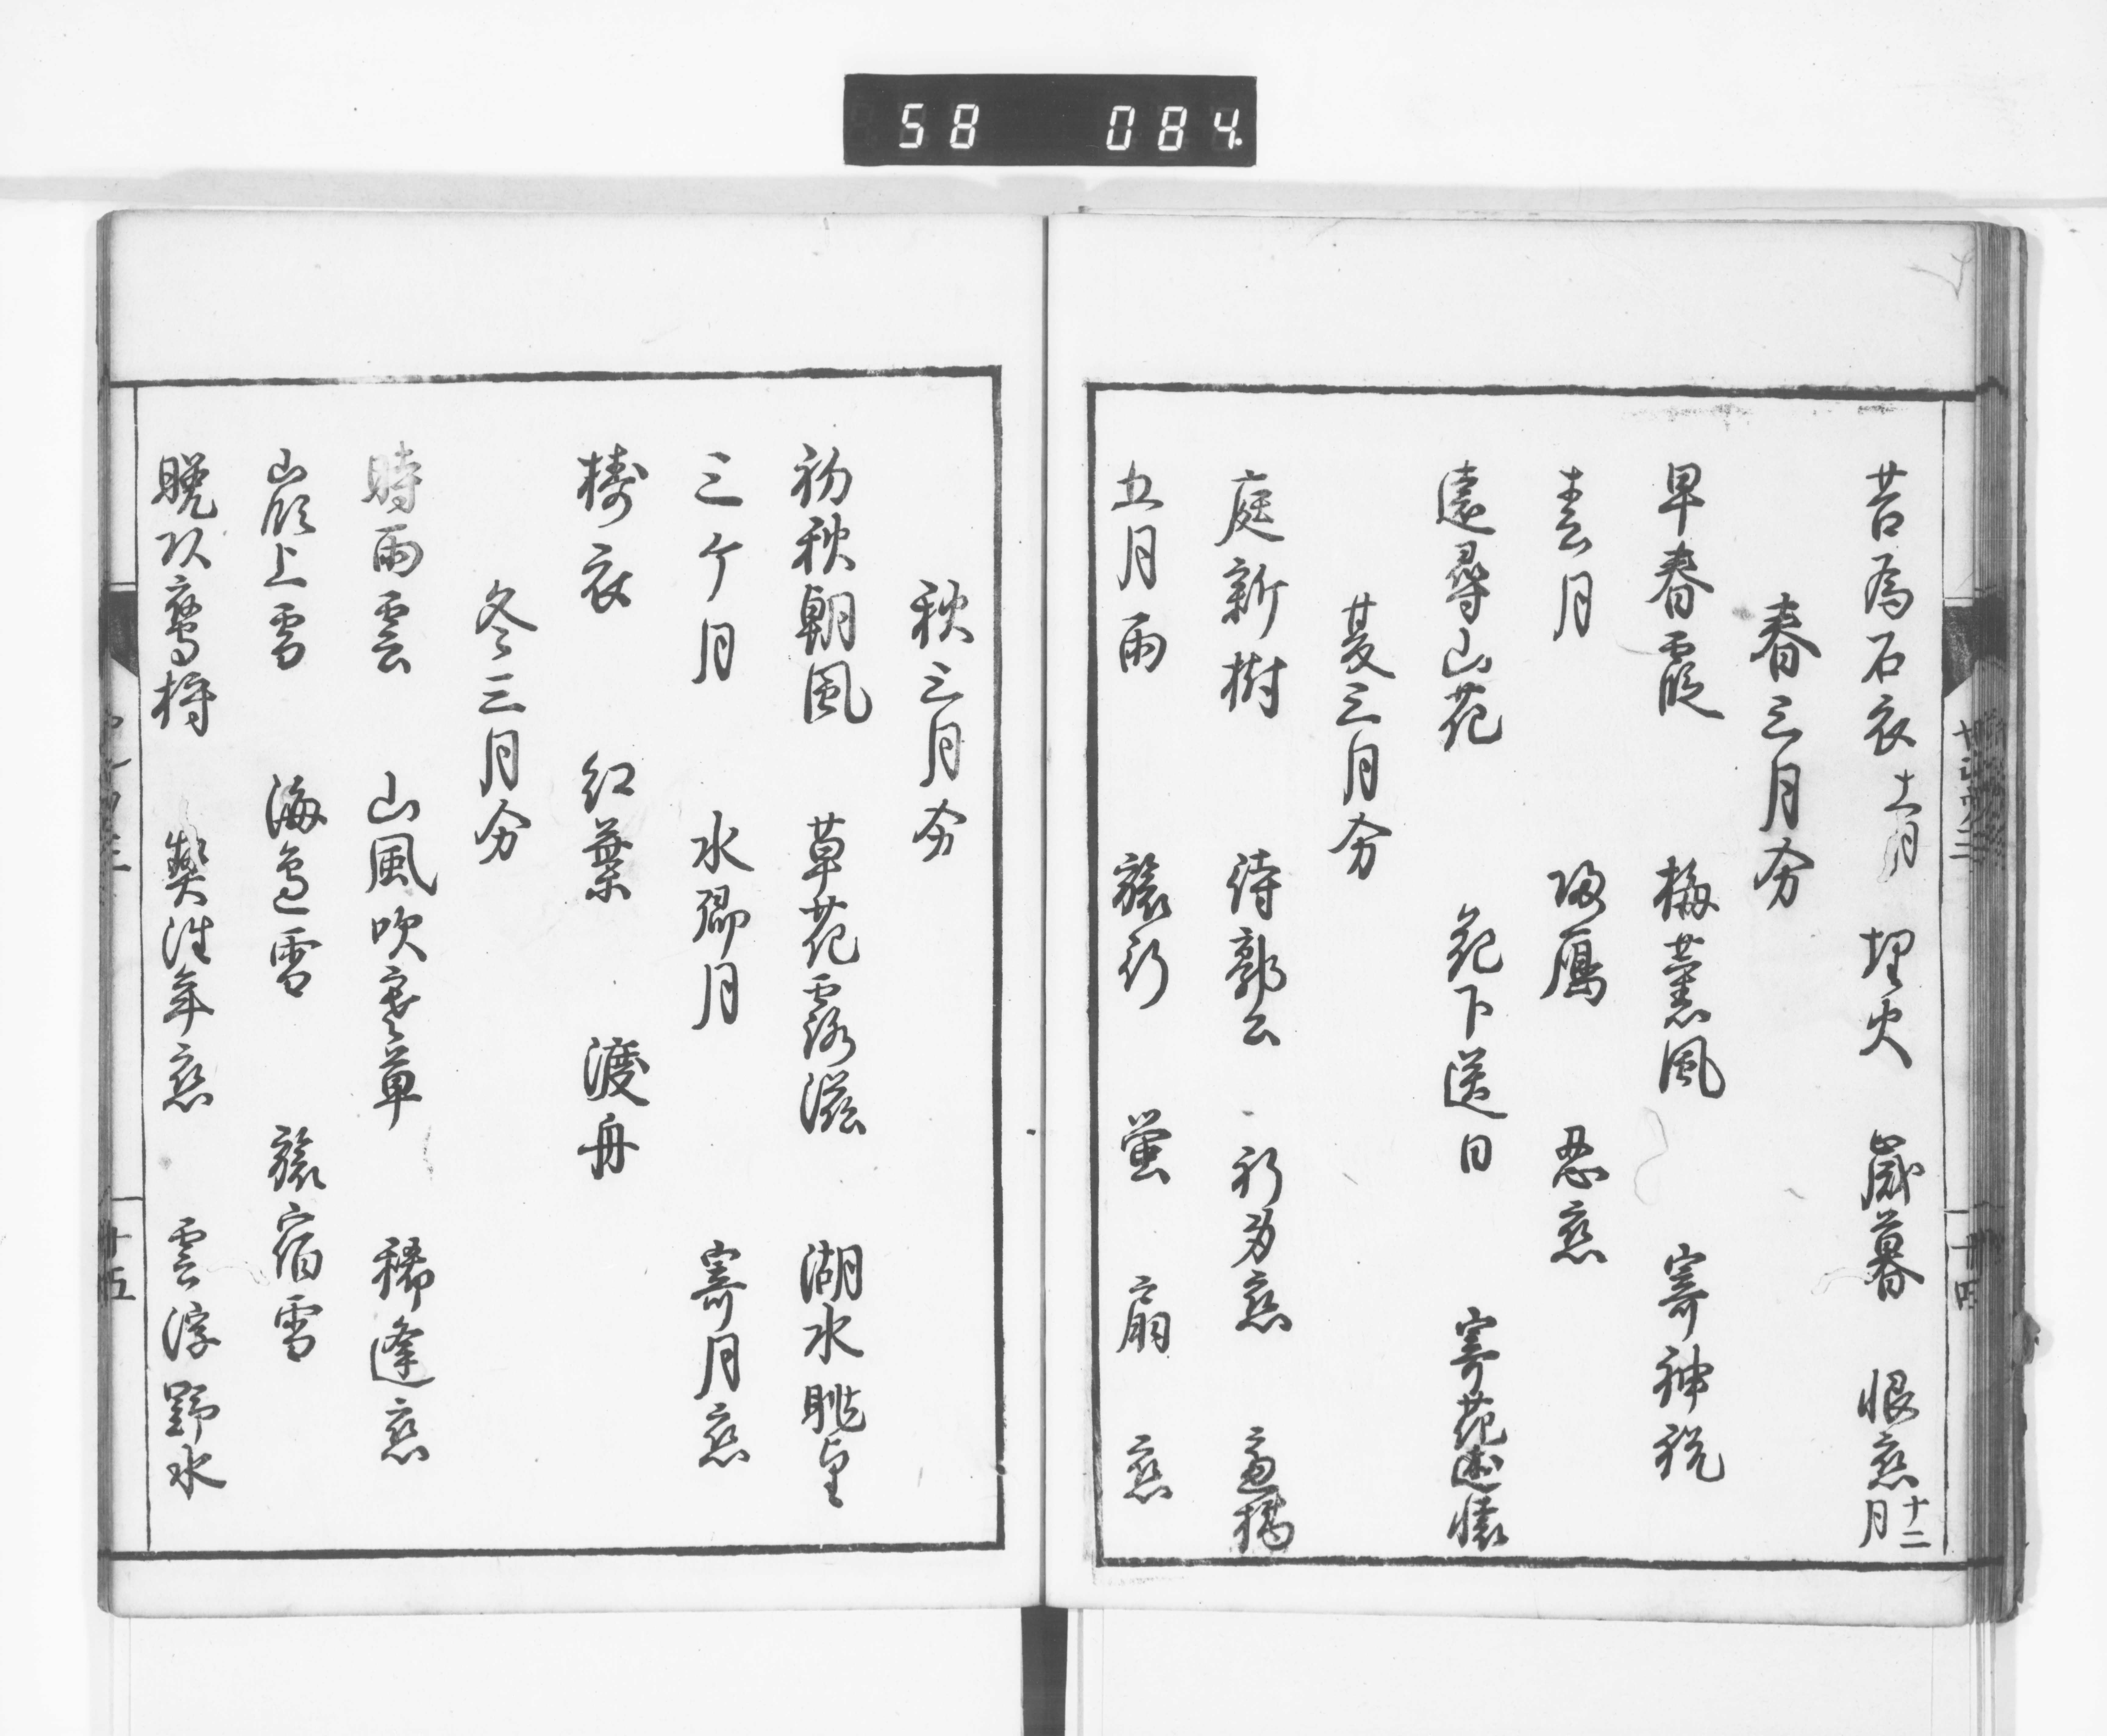 58 084
苔為石衣 十一月 埋火 歳暮 恨恋 十二月
春三月分
早春霞 梅薫風 寄神祝
春月 帰鴈 忍恋
遠尋山花 花下送日 寄花述懐
夏三月分
庭新樹 待郭公 祈身恋 盧橘
五月雨 旅行 蛍 扇 恋
十四
秋三月分
初秋朝風 草花露滋 湖水眺望
三ケ月 水郷月 寄月恋
擣衣 紅葉 渡舟
冬三月分
時雨雲 山風吹寒草 稀逢恋
山路上雪 海邊雪 旅宿雪
晩頭鷹狩 契往年恋 雲浮野水
十五